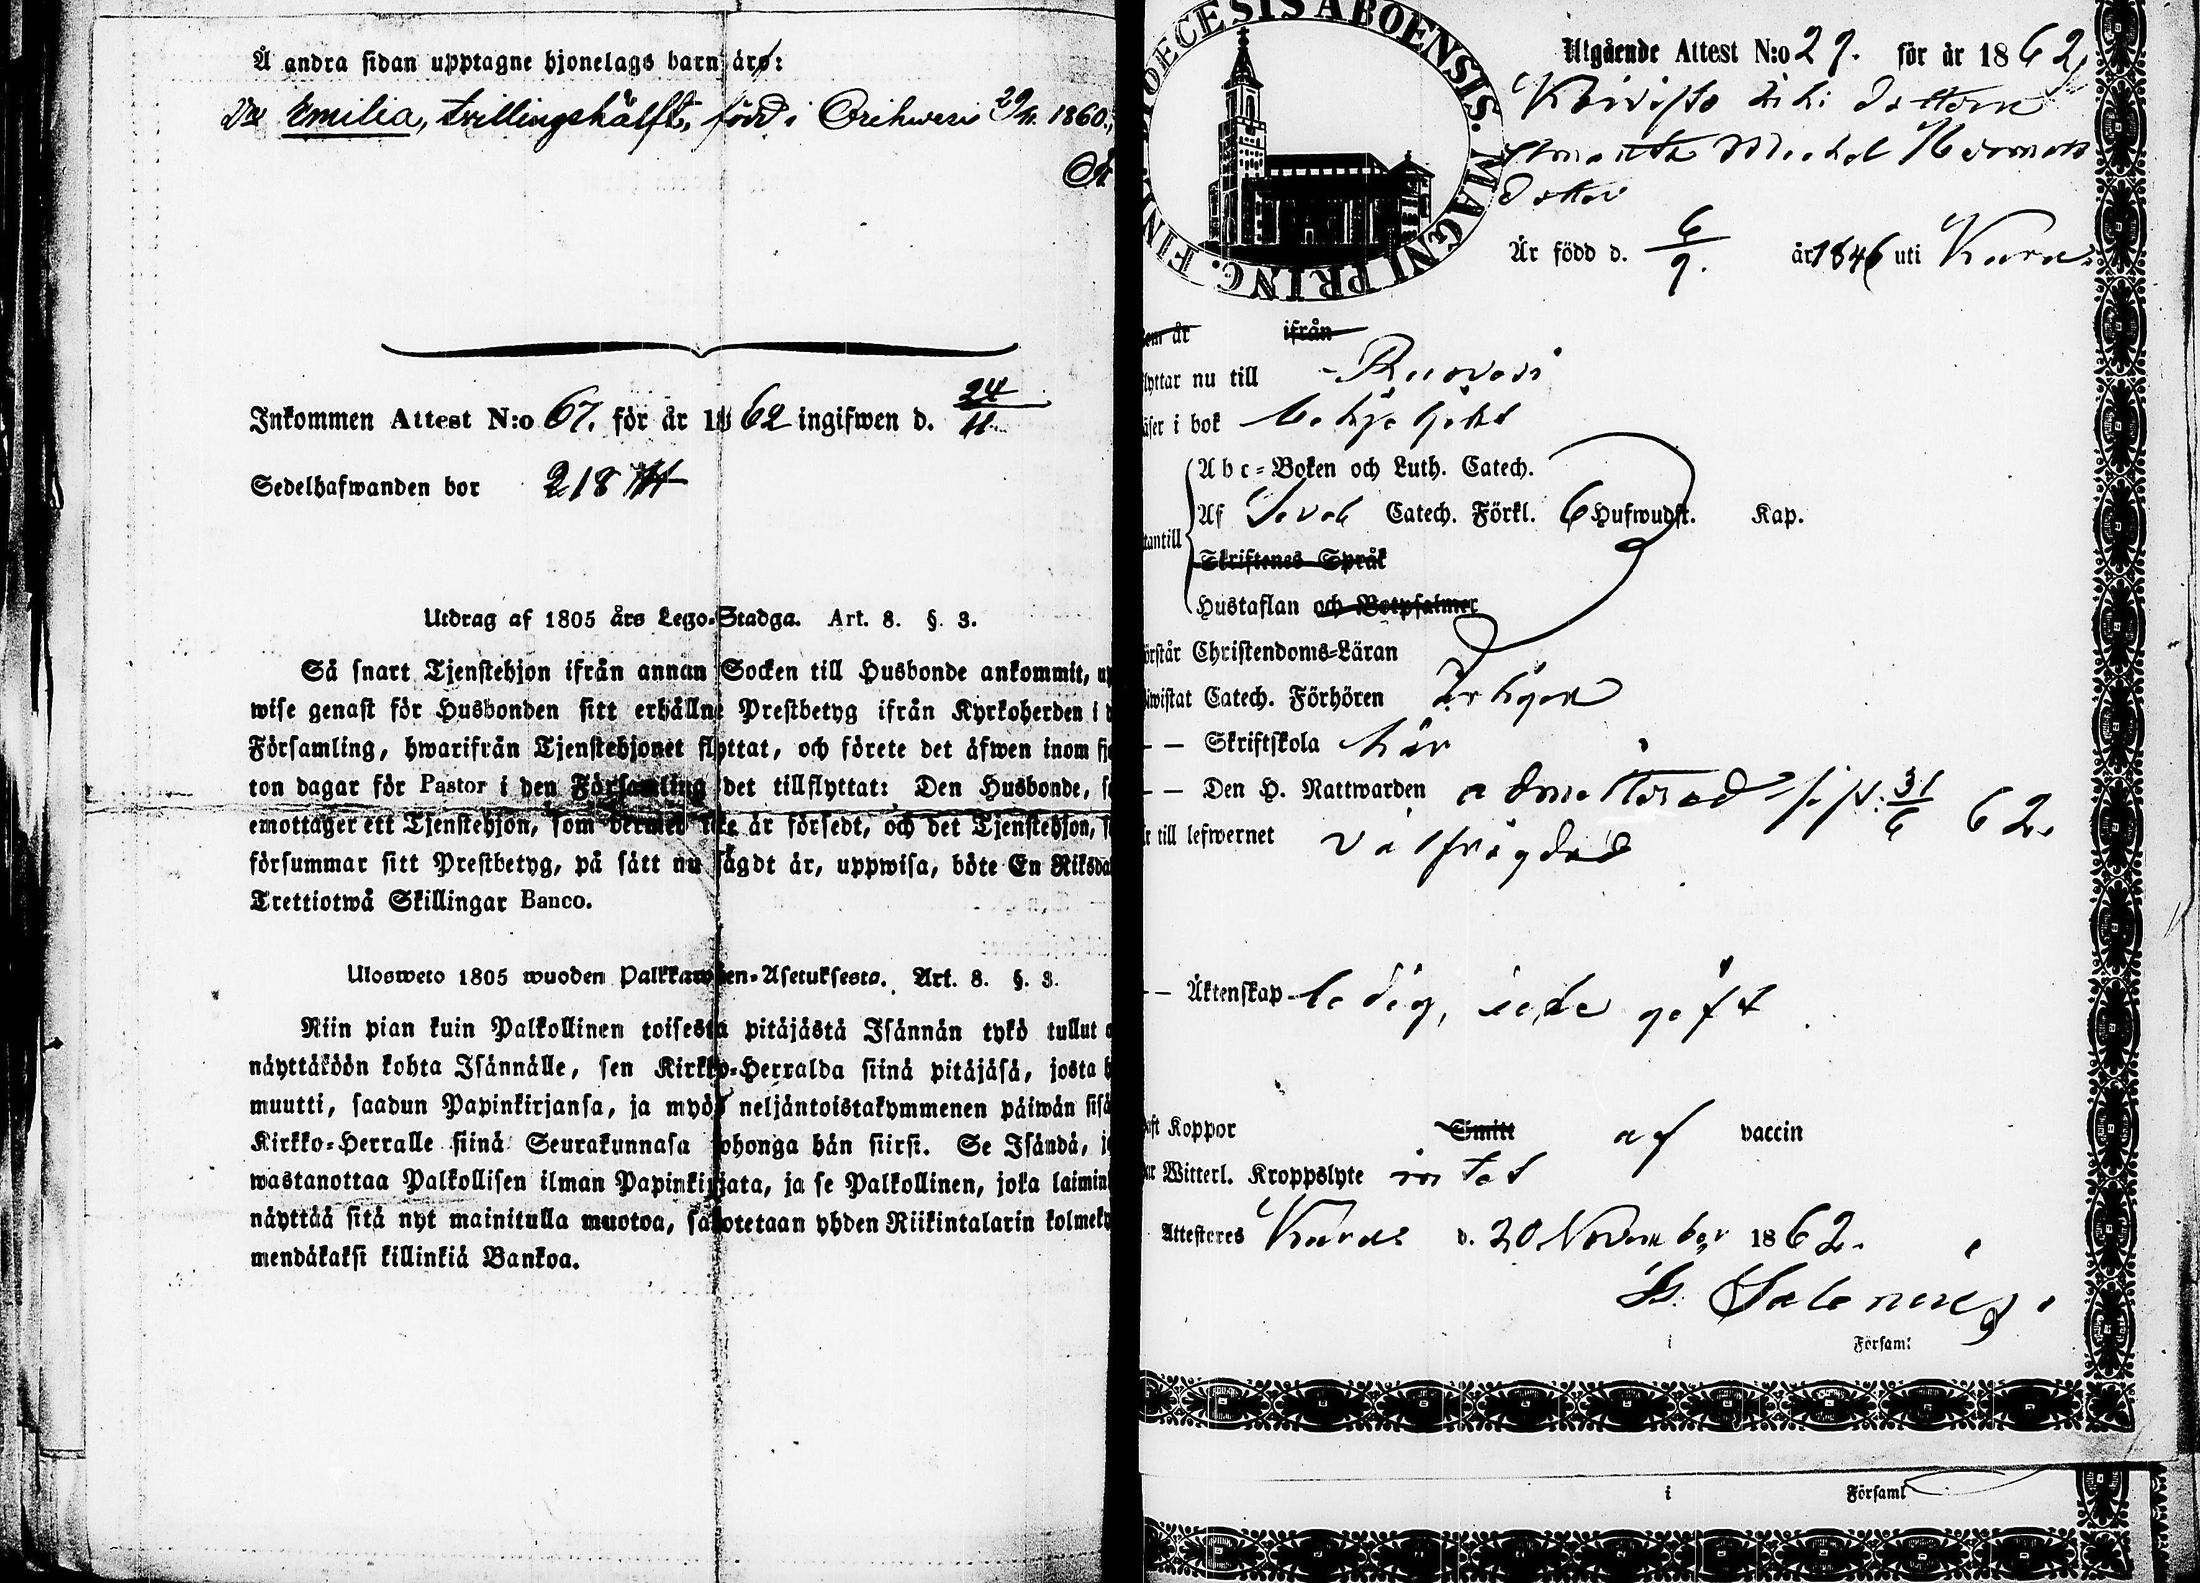 Å andra sidan upptagne hjonelags barn äro:
Emilia, tvillingshälft, född i Orihwesi 29/11. 1860.
Inkommen Attest N:o 67. för år 1862 ingifwen d. 24/11.
Sedelhafwanden bor 218
Utdrag af 1805 års Lego-Stadga. Art. 8. §. 3.
Så snart Tjenstehjon ifrån annan Socken till Husbonde ankommit, up
wise genast för Husbonden sitt erhållne Prestbetyg ifrån Kyrkoherden i d
Församling, hwarifrån Tjenstehjonet flyttat, och förete det äfwen inom fjo
ton dagar för Pastor i den Församling det tillflyttat: Den Husbonde, s
emottager ett Tjenstehjon, som dermed icke är försedt, och det Tjenstehjon, s
försummar sitt Prestbetyg, på sätt nu sagdt är, uppwisa, böte En Riksda
Trettiotwå Skillingar Banco.
Ulosweto 1805 wuoden Palkkawäen-Asetuksesta. Art. 8. §. 3.
Niin pian kuin Palkollinen toisesta pitäjästä Isännän tykö tullut o
näyttäköön kohta Isännälle, sen Kirkko-Herralda siinä pitäjäsä, josta h
muutti, saadun Papinkirjansa, ja myös neljäntoistakymmenen päiwän sisä
Kirkko-Herralle siinä Seurakunnasa johonga hän siirsi. Se Isändä, jo
wastanottaa Palkollisen ilman Papinkirjata, ja se Palkollinen, joka laimin
näyttää sitä nyt mainitulla muotoa, sakotetaan yhden Riikintalarin kolmeky
mendäkaksi killinkiä Bankoa.
DIOECESIS ABOENSIS. MAGNI PRINC. FIN
Utgående Attest N:o 29. för år 1862,
Koivisto dottern
Amanta Michel Hermans
dotter
Är född d. 6/9. år 1846 uti Kuru.
som är ifrån
lyttar nu till Ruovesi
äser i bok behjelpligt
Abc-Boken och Luth. Catech.
Af Sveb Catech. Förkl. 6 Hufwudst. Kap.
tantill
Skriftenes Språk
Hustaflan och Botpsalmer
örstår Christendoms-Läran
iwistat Catech. Förhören årligen
— — Skriftskola här
— — Den H. Nattwarden admitterad, sist 31/6 62.
r till lefwernet välfrägdad
— — Äktenskap ledig, icke gift
aft Koppor Smitt af vaccin
ar Witterl. Kroppslyte intet
Attesteres Kuru d. 20 November 1862.
Is. Salenius.
i Församl
i Församl